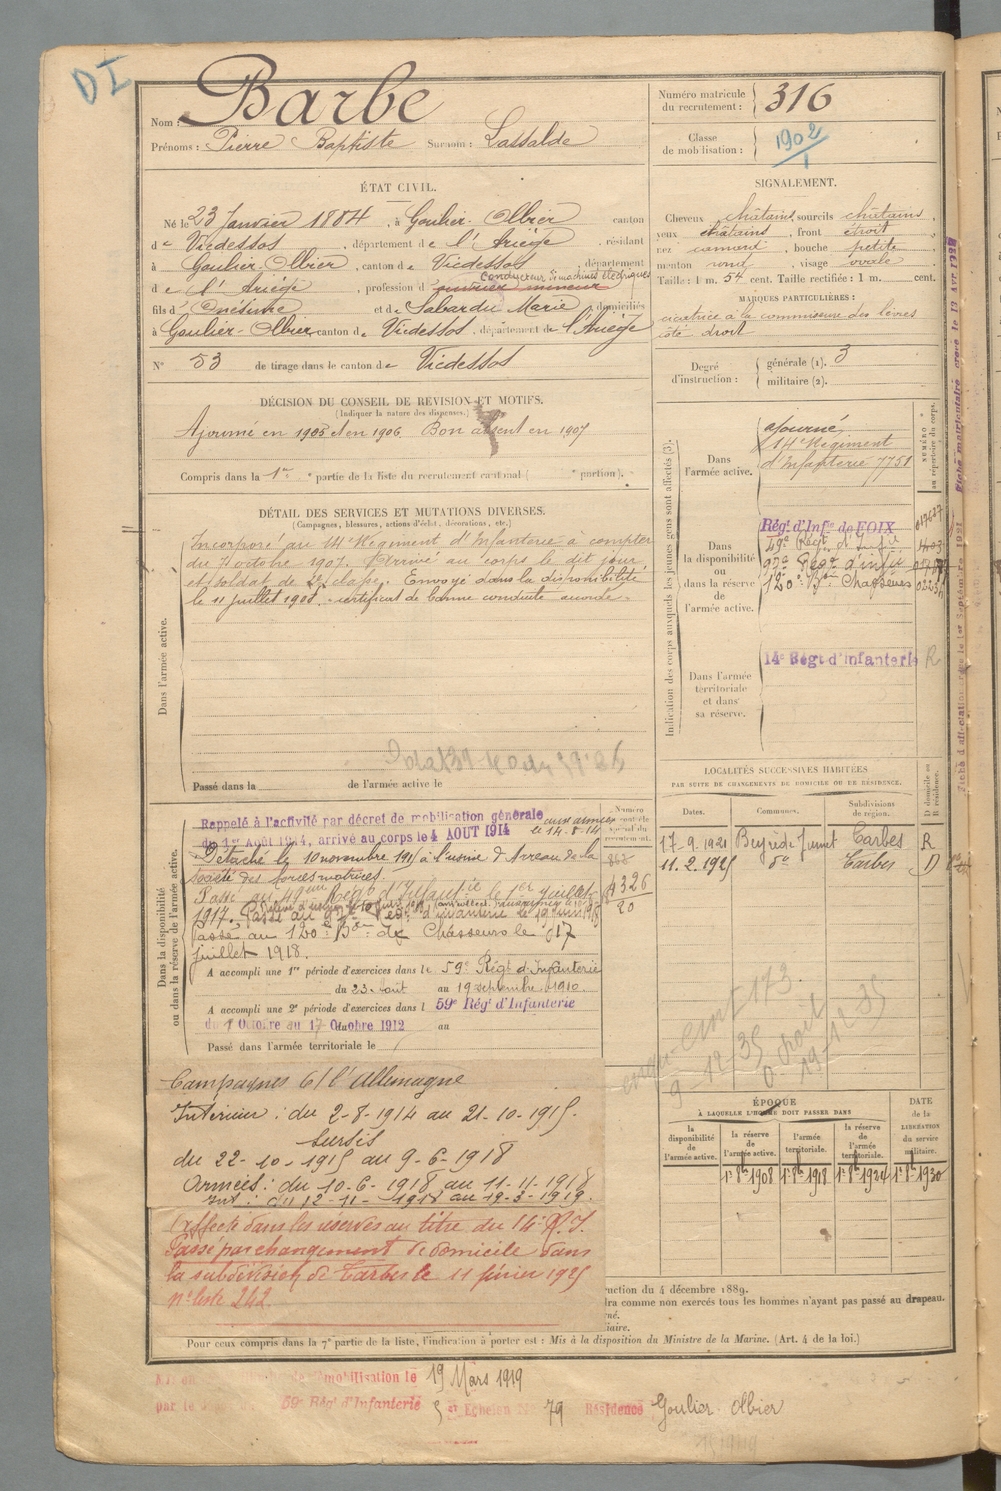 D I
Nom : Barbe
Prénoms : Pierre Baptiste Surnom : Lassalde
Numéro matricule du recrutement : 316
Classe de mobilisation : 1902
ÉTAT CIVIL.
Né le 23 Janvier 1884, à Goulier-Olbier canton
de Vicdessos, département de l'Ariège, résidant
à Goulier-Olbier, canton de Vicdessos, département
conducteur de machines électriques
de l'Ariège, profession d ouvrier mineur
fils d'Onésime et de Sabardu Marie, domiciliés
à Goulier-Olbier canton de Vicdessos, département de l'Ariège
N° 53 de tirage dans le canton de Vicdessos
SIGNALEMENT.
Cheveux châtains, sourcils châtains,
yeux châtains, front étroit,
nez, bouche petite,
menton rond, visage ovale.
Taille : 1 m. 54 cent. Taille rectifiée : 1 m. cent.
MARQUES PARTICULIÈRES :
cicatrice à la commissure des lèvres
côté droit
Degré d'instruction : générale (1). 3
militaire (2).
DÉCISION DU CONSEIL DE RÉVISION ET MOTIFS.
(Indiquer la nature des dispenses.)
Ajourné en 1905 et en 1906. Bon absent en 1907
Compris dans la 1re partie de la liste du recrutement cantonal ( e portion).
DÉTAIL DES SERVICES ET MUTATIONS DIVERSES.
(Campagnes, blessures, actions d'éclat, décorations, etc.)
Dans l'armée active.
Incorporé au 14e Régiment d'Infanterie à compter
du 7 octobre 1907. Arrivé au corps le dit jour
et soldat de 2e classe. Envoyé dans la disponibilité
le 11 juillet 1908. certificat de bonne conduite accordé.
Passé dans la de l'armée active le
Indication des corps auxquels les jeunes gens sont affectés (3).
NUMÉRO au répertoire du corps.
Dans l'armée active.
ajourné
14e Régiment
d'Infanterie 7751
Dans la disponibilité ou dans la réserve de l'armée active.
Rég. d'Infie de FOIX
59e Régt d'Infie
120e Bon Chasseurs
Dans l'armée territoriale et dans sa réserve.
14e Régt d'Infanterie R
LOCALITÉS SUCCESSIVES HABITÉES
PAR SUITE DE CHANGEMENTS DE DOMICILE OU DE RÉSIDENCE.
Dates. Communes. Subdivisions de région. D domicile ou R résidence.
17.9.1921 Beyrède Jumet Tarbes R
11.2.1925 do Tarbes D
Dans la disponibilité ou dans la réserve de l'armée active.
Rappelé à l'activité par décret de mobilisation générale
du 1er Août 1914, arrivé au corps le 4 AOUT 1914
aux armées le 14-8-14
Détaché le 10 novembre 1915 à l'usine d'Arreau de la
société des forces motrices.
1917. Passé au d'infanterie le
Passé au 120e Bon de Chasseurs le 17
juillet 1918.
A accompli une 1re période d'exercices dans le 59e Régt d'Infanterie
du 23 août au 19 septembre 1910
A accompli une 2e période d'exercices dans l 59e Rég. d'Infanterie
du 1 Octobre au 17 Octobre 1912 au
Passé dans l'armée territoriale le
1326
20
Campagnes c/ l'Allemagne
Intérieur : du 2-8-1914 au 21-10-1915.
Sursis
du 22-10-1915 au 9-6-1918
Armées : du 10-6-1918 au 11-11-1918
Int : du 12-11-1918 au 19-3-1919.
Affecté dans les réserves au titre du 14e R.I.
Passé par changement de domicile dans
la subdivision de Tarbes le 11 février 1925
n° liste 242
9-12-35
ÉPOQUE
À LAQUELLE L'HOMME DOIT PASSER DANS
la disponibilité de l'armée active. la réserve de l'armée active. l'armée territoriale. la réserve de l'armée territoriale.
DATE de la LIBÉRATION du service militaire.
1er 8bre 1908 1er 8bre 1918 1er 8bre 1924 1er 8bre 1930
ruction du 4 décembre 1889.
dra comme non exercés tous les hommes n'ayant pas passé au drapeau.
Pour ceux compris dans la 7e partie de la liste, l'indication à porter est : Mis à la disposition du Ministre de la Marine. (Art. 4 de la loi.)
mobilisation le 19 Mars 1919
par le 59e Rég. d'Infanterie Echelon N° 79 Résidence Goulier-Olbier